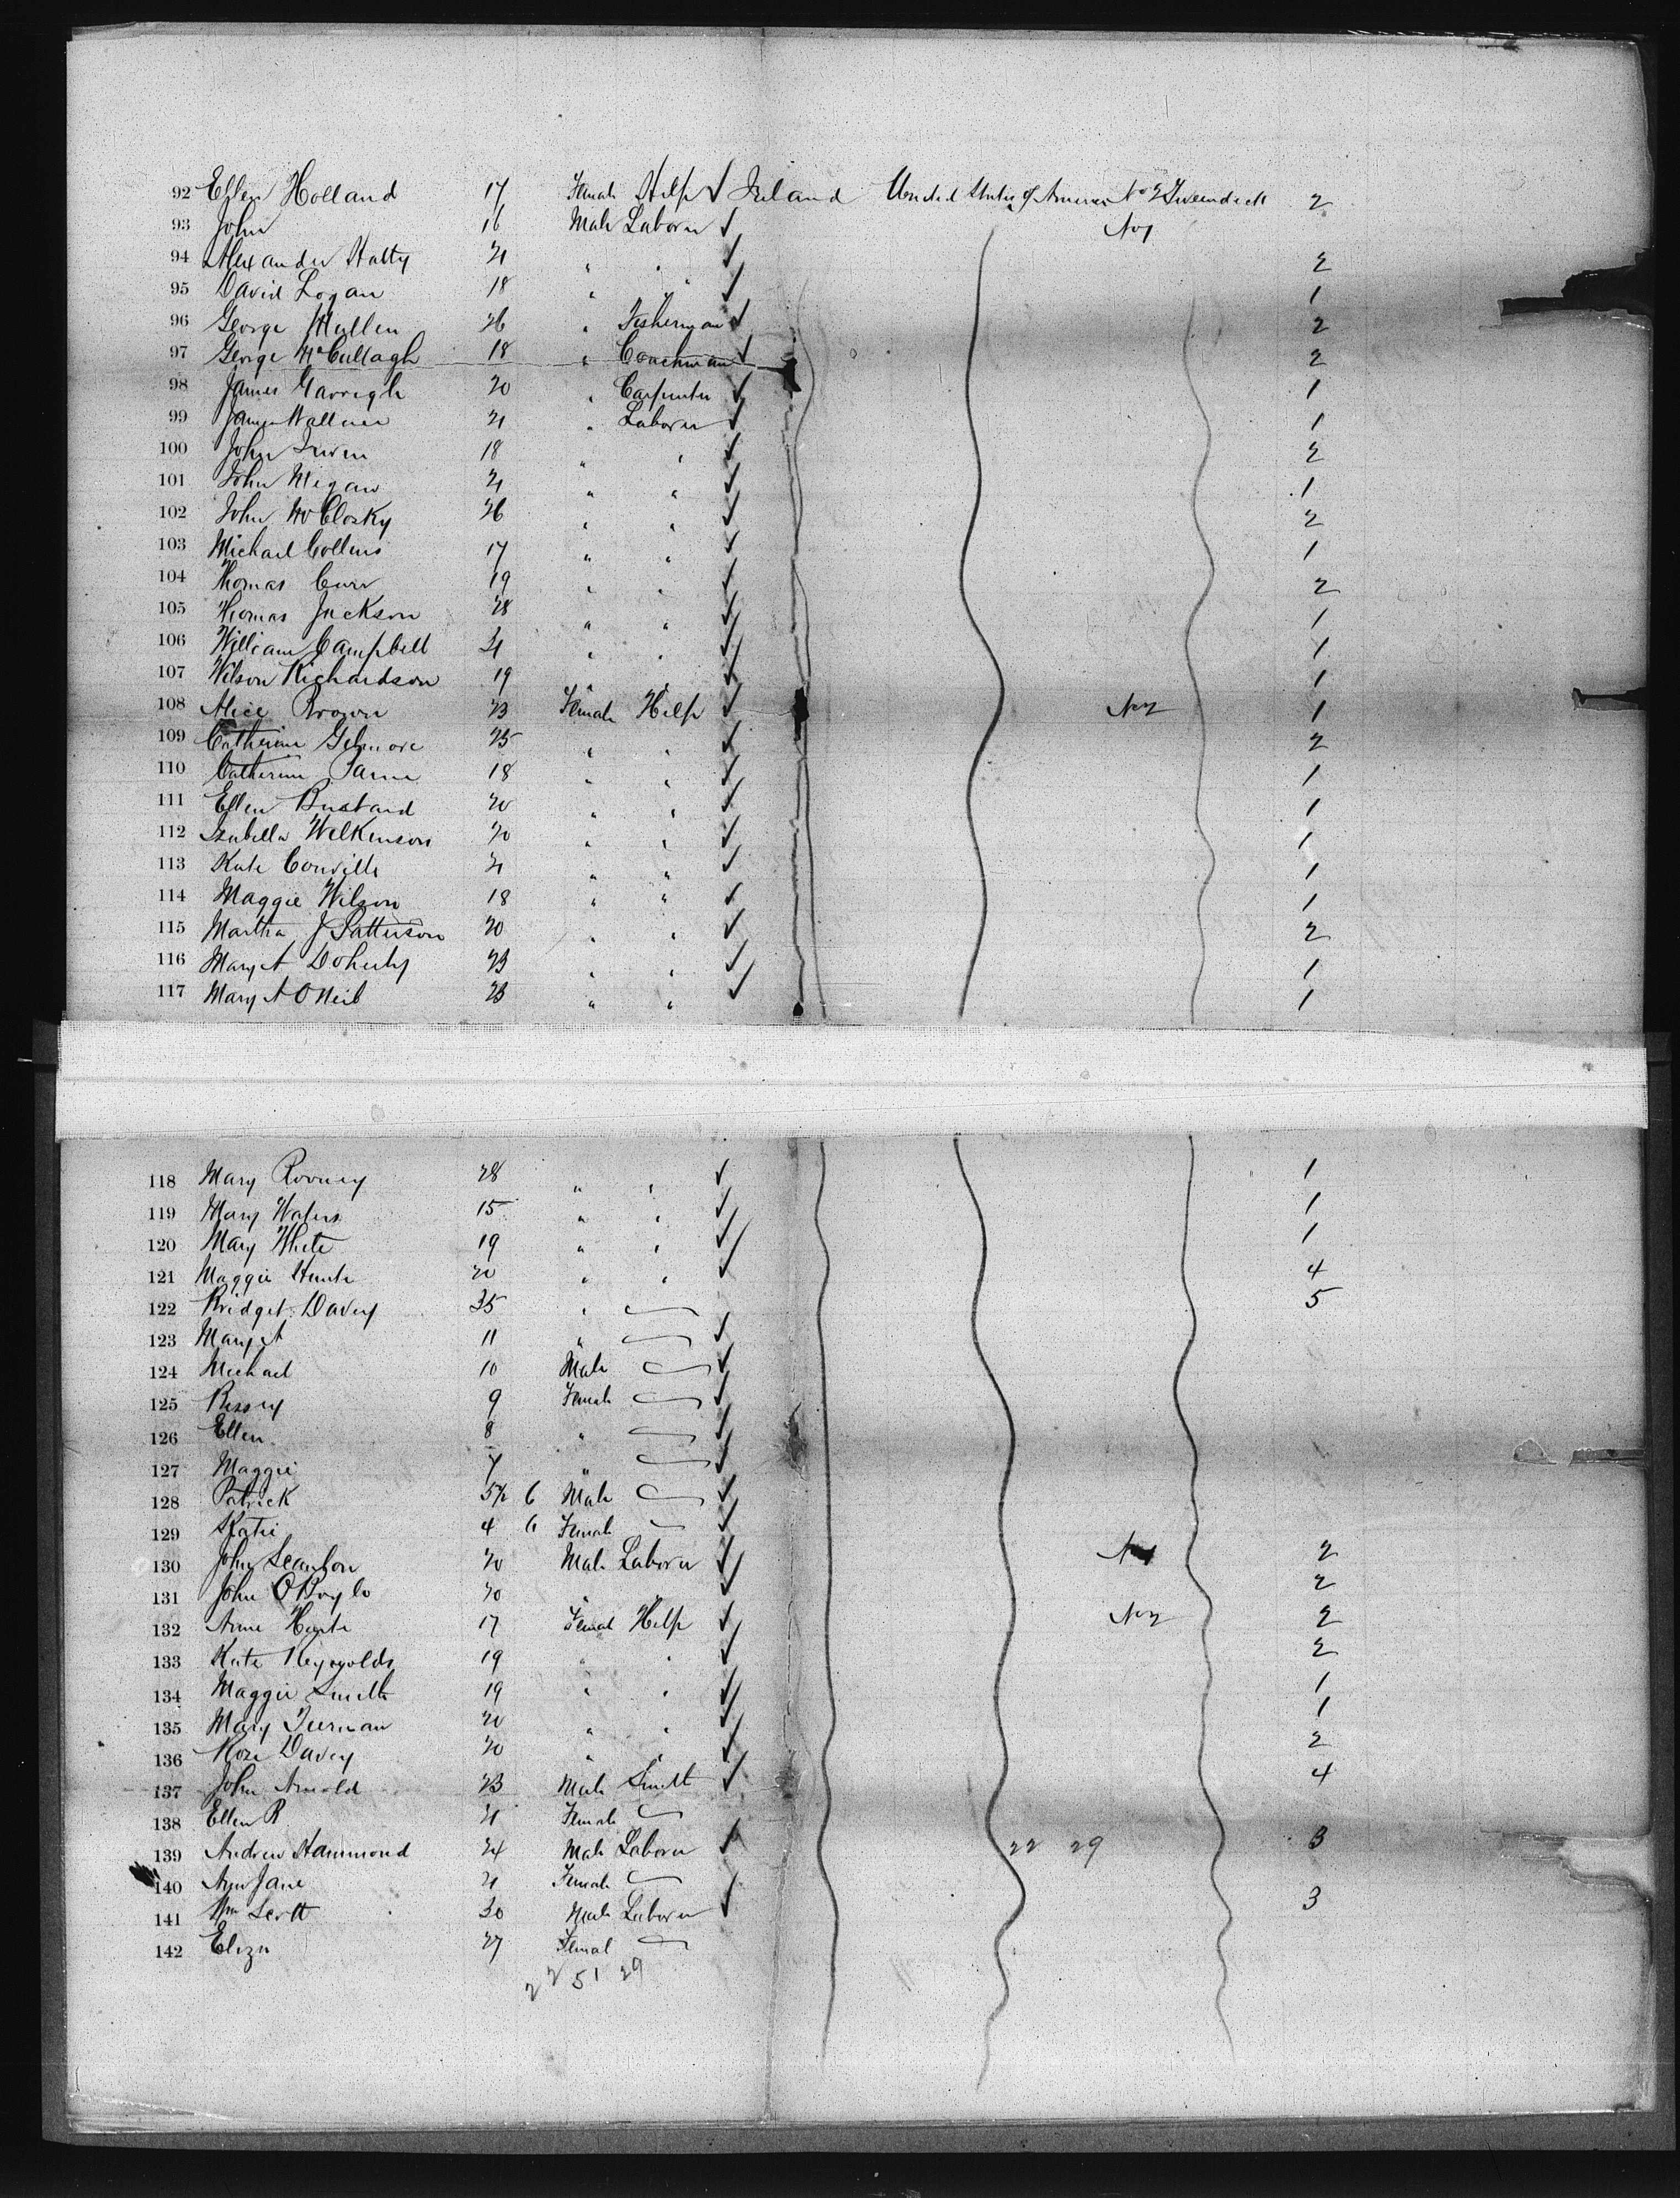 92 Ellen Holland 17 Female Help Ireland United States of America No 2 Tweendeck 2
93 John 16 Male Laborer No 1
94 Alexander 21 " " 2
95 David Logan 18 " " 1
96 George Mullen 26 " Fisherman 2
97 George McCullagh 18 " Coachman 2
98 James 20 " Carpenter 1
99 James 21 " Laborer 1
100 John 18 " " 2
101 John Megaw 21 " " 1
102 John McClosky 26 " " 2
103 Michael Collins 17 " " 1
104 Thomas 19 " " 2
105 Thomas Jackson 28 " " 1
106 William Campbell 21 " " 1
107 Wilson Richardson 19 " " 1
108 Alice Brown 23 Female Help No 2 1
109 Catherine Gilmore 25 " " 2
110 Catherine 18 " " 1
111 Ellen Bustard 20 " " 1
112 Isabella Wilkinson 20 " " 1
113 Kate Conville 21 " " 1
114 Maggie Wilson 18 " " 1
115 Martha J Patterson 20 " " 2
116 Mary A Doherty 23 " " 1
117 Mary A O'Neil 23 " " 1
118 Mary Rooney 28 " " 1
119 Mary Waters 15 " " 1
120 Mary White 19 " " 1
121 Maggie 20 " " 4
122 Bridget Davey 35 " 5
123 Mary A 11 "
124 Michael 10 Male
125 Bessey 9 Female
126 Ellen 8 "
127 Maggie 7 "
128 Patrick 5 6 Male
129 Katie 4 6 Female
130 John Scanlon 20 Male Laborer No 1 2
131 John O'Boyle 20 " " 2
132 Anne 17 Female Help No 2 2
133 Kate Reynolds 19 " " 2
134 Maggie Smith 19 " " 1
135 Mary Tiernan 20 " " 1
136 Rose Davey 20 " " 2
137 John Arnold 23 Male Smith 4
138 Ellen R 21 Female
139 Andrew Hammond 24 Male Laborer 22 29 3
140 Ann Jane 21 Female
141 Wm Scott 30 Male Laborer 3
142 Eliza 27 Female
22 51 29